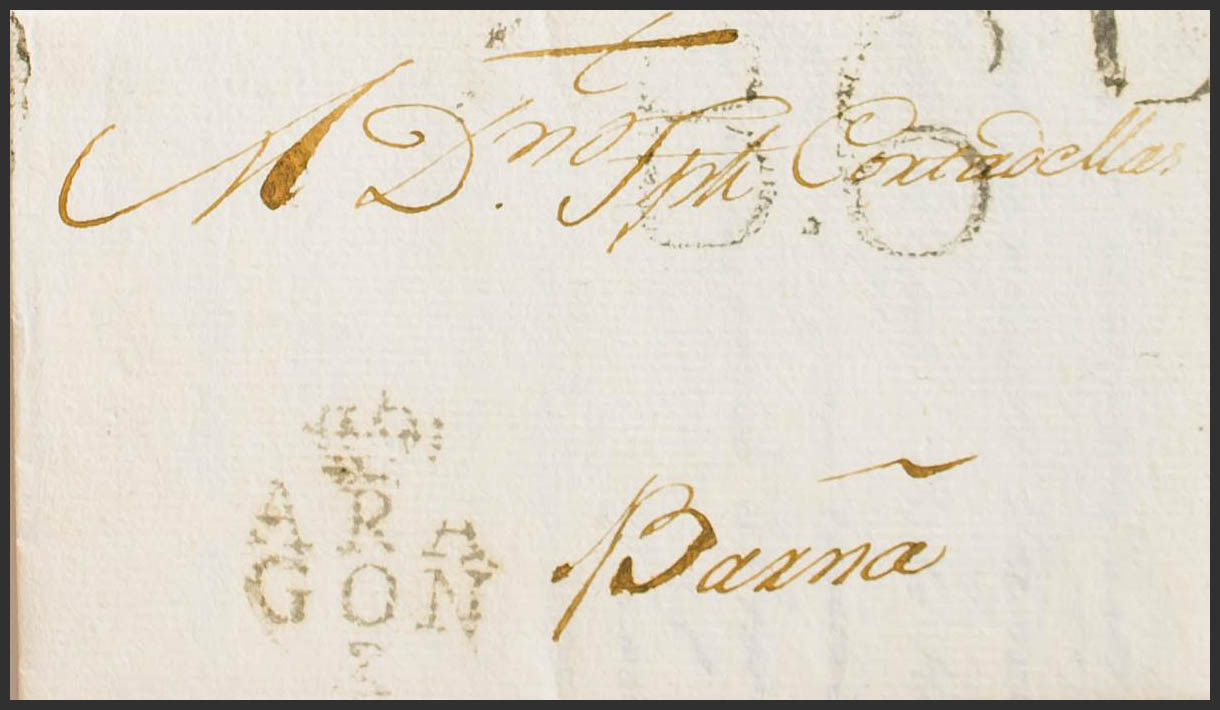 A Dn Jph Cortadellas
B.6
ARA
GON
Barna